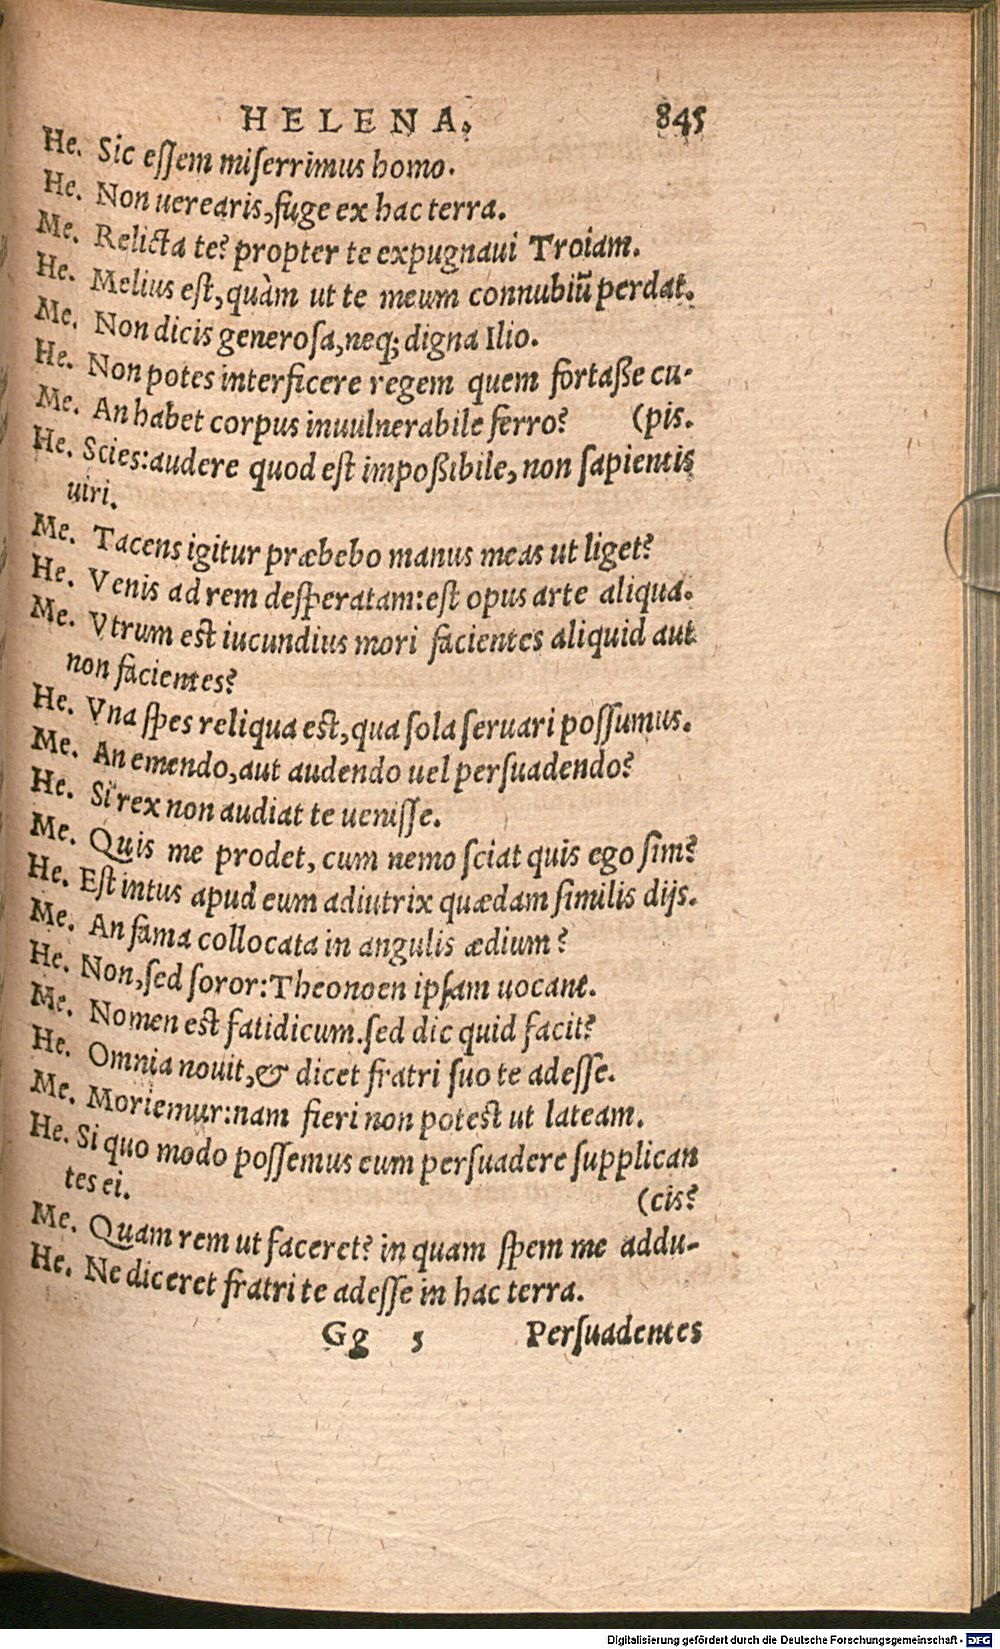 HELENA. 845
He. Sic eſſem miſerrimus homo.
He. Non uerearis, fuge ex hac terra.
Me. Relicta te? propter te expugnaui Troiam.
He. Melius eſt, quàm ut te meum connubiũ perdat.
Me. Non dicis generoſa, neq; digna Ilio.
He. Non potes interficere regem quem fortaße cu-
Me. An habet corpus inuulnerabile ferro? (pis.
He. Scies: audere quod eſt impoßibile, non ſapientis
uiri.
Me. Tacens igitur præbebo manus meas ut liget?
He. Venis ad rem deſperatam: eſt opus arte aliqua.
Me. Vtrum eſt iucundius mori facientes aliquid aut
non facientes?
He. Vna ſpes reliqua eſt, qua ſola ſeruari poſſumus.
Me. An emendo, aut audendo uel perſuadendo?
He. Si rex non audiat te ueniſſe.
Me. Quis me prodet, cum nemo ſciat quis ego ſim?
He. Eſt intus apud eum adiutrix quædam ſimilis dijs.
Me. An fama collocata in angulis ædium?
He. Non, ſed ſoror: Theonoen ipſam uocant.
Me. Nomen eſt fatidicum. ſed dic quid facit?
He. Omnia nouit, & dicet fratri ſuo te adeſſe.
Me. Moriemur: nam fieri non poteſt ut lateam.
He. Si quo modo poſſemus eum perſuadere ſupplican
tes ei. (cis?
Me. Quam rem ut faceret? in quam ſpem me addu-
He. Ne diceret fratri te adeſſe in hac terra.
Gg 5 Perſuadentes
Digitalisierung gefördert durch die Deutsche Forschungsgemeinschaft - DFG